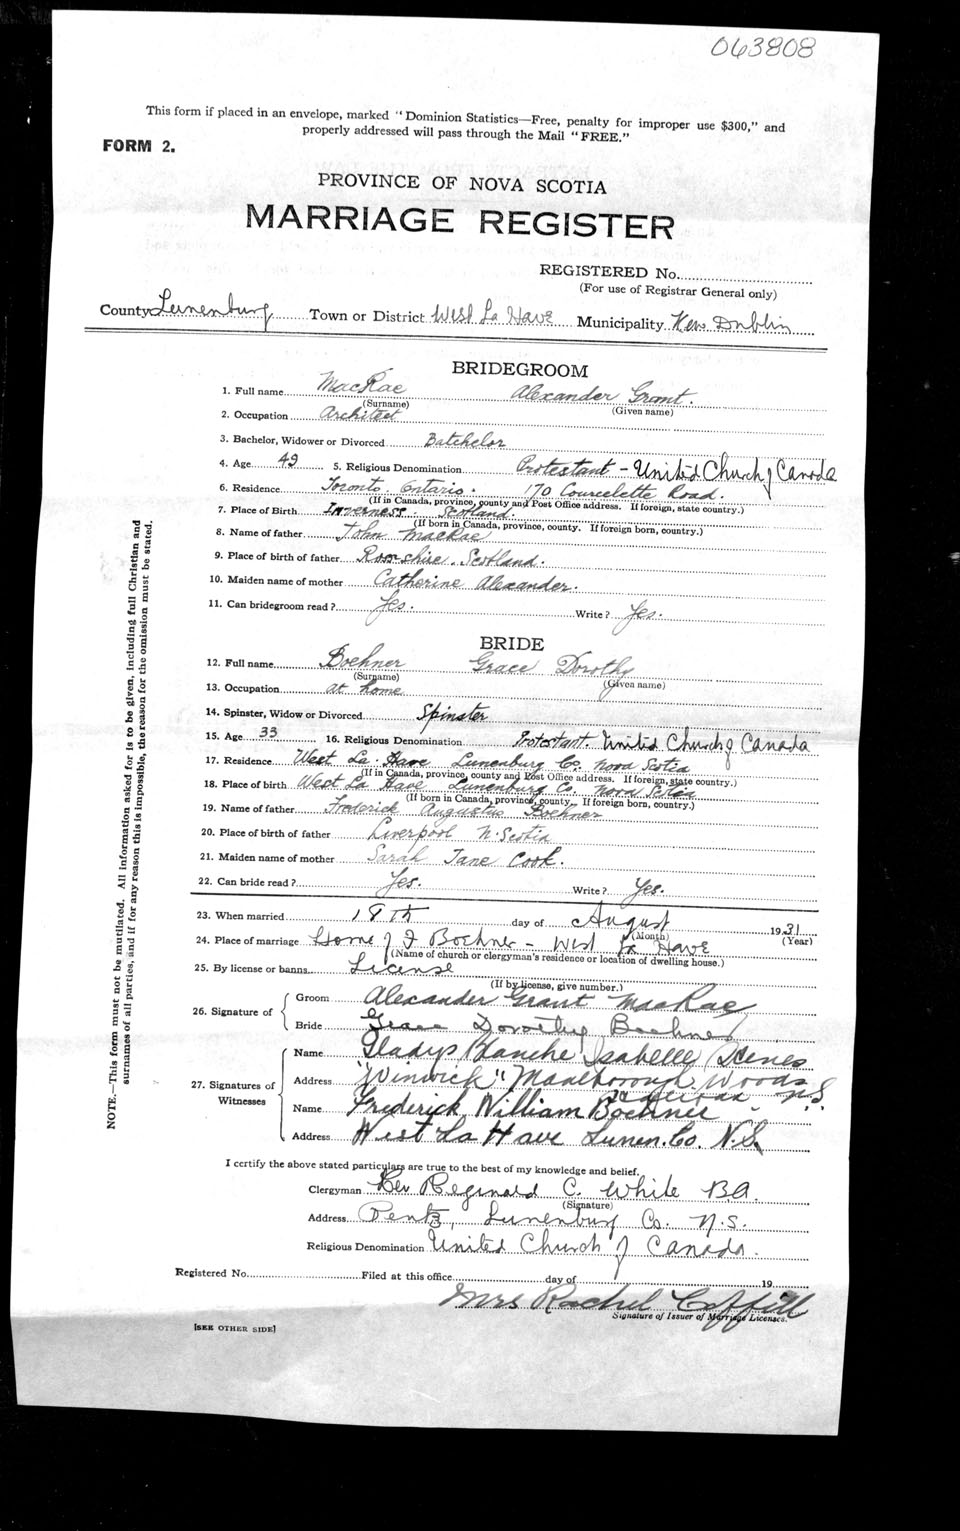 063808
This form if placed in an envelope, marked "Dominion Statistics—Free, penalty for improper use $300," and
properly addressed will pass through the Mail "FREE."
FORM 2.
PROVINCE OF NOVA SCOTIA
MARRIAGE REGISTER
REGISTERED No.
(For use of Registrar General only)
County Lunenburg Town or District West La Have Municipality New Dublin
BRIDEGROOM
1. Full name MacRae Alexander Grant.
(Surname) (Given name)
2. Occupation Architect
3. Bachelor, Widower or Divorced Batchelor
4. Age 49 5. Religious Denomination Protestant - United Church of Canada
6. Residence Toronto. Ontario. 170 Courcelette Road.
(If in Canada, province, county and Post Office address. If foreign, state country.)
7. Place of Birth Inverness. Scotland.
(If born in Canada, province, county. If foreign born, country.)
8. Name of father John MacRae
9. Place of birth of father Scotland.
10. Maiden name of mother Catherine Alexander.
11. Can bridegroom read? Yes. Write? Yes.
BRIDE
12. Full name Boehner Grace Dorothy
(Surname) (Given name)
13. Occupation at home
14. Spinster, Widow or Divorced Spinster
15. Age 33 16. Religious Denomination Protestant. United Church of Canada
17. Residence West La Have Lunenburg Co. Nova Scotia
(If in Canada, province, county and Post Office address. If foreign, state country.)
18. Place of birth West La Have Lunenburg Co. Nova Scotia
(If born in Canada, province, county. If foreign born, country.)
19. Name of father Frederick Augustus Boehner
20. Place of birth of father Liverpool N. Scotia
21. Maiden name of mother Sarah Jane Cook.
22. Can bride read? Yes. Write? Yes.
23. When married 18th day of August 1931
(Month) (Year)
24. Place of marriage Home of F Boehner - West La Have
(Name of church or clergyman's residence or location of dwelling house.)
25. By license or banns License
(If by license, give number.)
26. Signature of Groom Alexander Grant MacRae
Bride Grace Dorothy Boehner
27. Signatures of Witnesses
Name Gladys Blanche Isabelle
Address "Winwick" Marlborough Woods
Halifax N.S.
Name Frederick William Boehner
Address West La Have Lunen. Co. N.S.
I certify the above stated particulars are true to the best of my knowledge and belief.
Clergyman Rev Reginald C. White BA.
(Signature)
Address Pentz, Lunenburg Co. N.S.
Religious Denomination United Church of Canada.
Registered No. Filed at this office day of 19
Mrs Rachel
Signature of Issuer of Marriage Licenses.
[SEE OTHER SIDE]
NOTE.—This form must not be mutilated. All information asked for is to be given, including full Christian and
surnames of all parties, and if for any reason this is impossible, the reason for the omission must be stated.